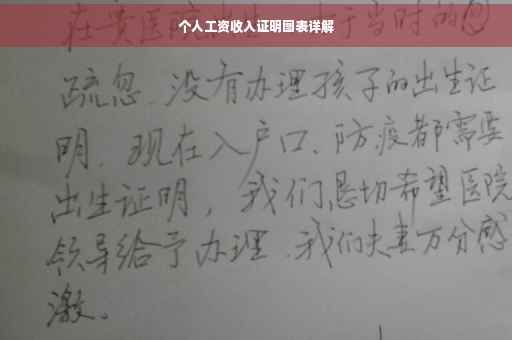 个人工资收入证明图表详解
在贵医院出生，由于当时的
疏忽、没有办理孩子的出生证
明、现在入户口、防疫都需要
出生证明，我们恳切希望医院
领导给予办理、我们夫妻万分感
激。